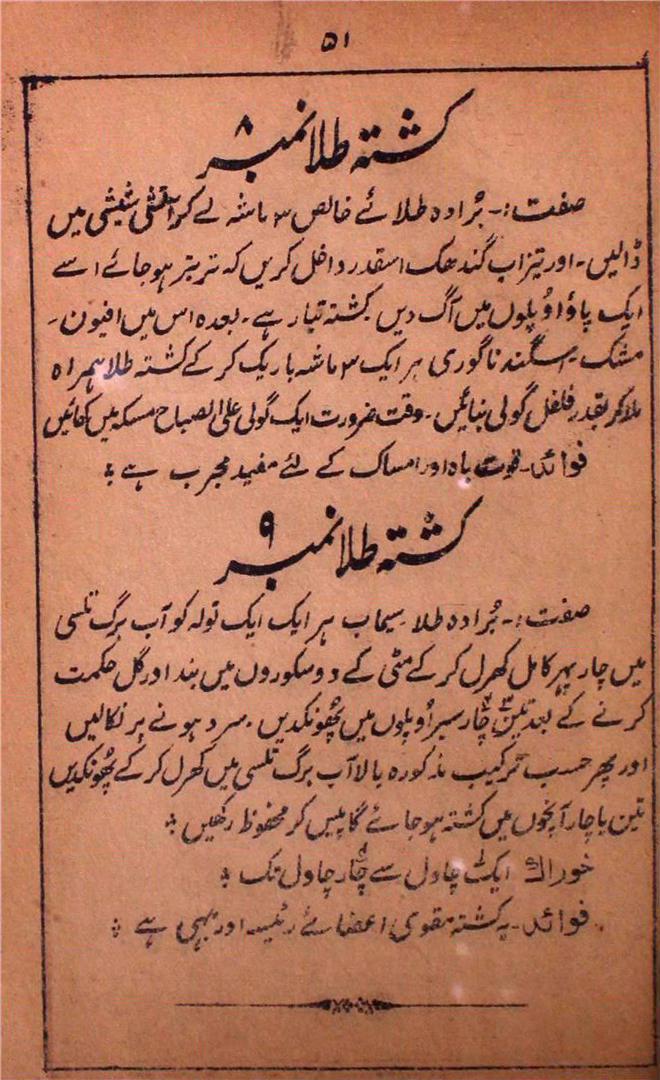 ۵۱
کشتہ طلا نمبر ۸
صفت:۔ بُرادہ طلائے خالص ۳ ماشہ لے کر آتشی شیشی میں
ڈالیں۔ اور تیزاب گندھک اسقدر داخل کریں کہ تر بتر ہو جائے اسے
ایک پاؤ اوپلوں میں آگ دیں کشتہ تیار ہے۔ بعدہ اس میں افیون۔
مشک۔ اسگند ناگوری ہر ایک ۳ ماشہ باریک کر کے کشتہ طلا ہمراہ
ملا کر بقدر فلفل گولی بنائیں۔ وقت ضرورت ایک گولی علی الصباح مسکہ میں کھائیں
فوائد۔ قوت باہ اور امساک کے لئے مفید مجرب ہے ؛
کشتہ طلا نمبر ۹
صفت:۔ بُرادہ طلا سیماب ہر ایک ایک تولہ کو آب برگ تلسی
میں چار پہر کامل کھرل کر کے مٹی کے دو سکوروں میں بند اور گل حکمت
کرنے کے بعد تین ۳ چار سیر اُوپلوں میں پھُونکدیں۔ سرد ہونے پر نکالیں
اور پھر حسب ترکیب مذکورہ بالا آب برگ تلسی میں کھرل کر کے پھُونکدیں
تین یا چار آنچوں میں کشتہ ہو جائے گا پیس کر محفوظ رکھیں ؛
خوراک ایک چاول سے چار چاول تک ؛
فوائد۔ یہ کشتہ مقوی اعضائے رئیسہ اور بہی ہے ؛